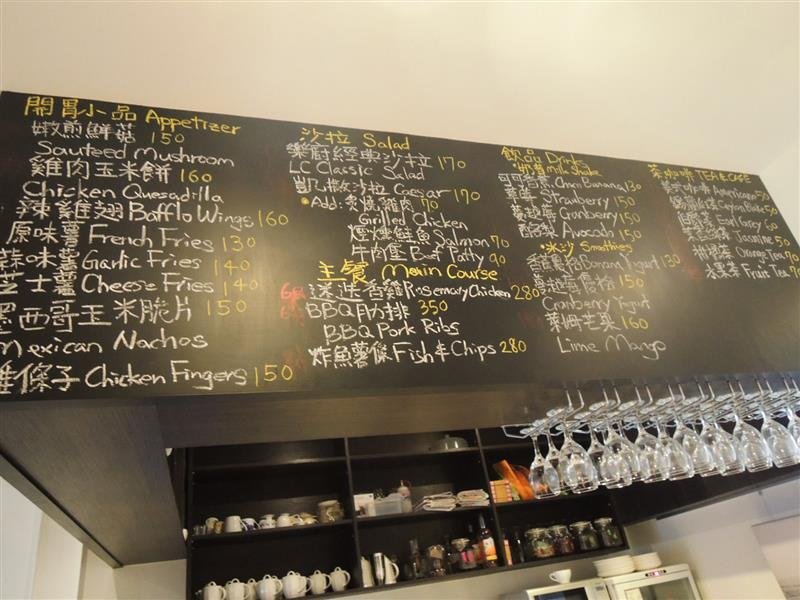 開胃小品 Appetizer
嫩煎鮮菇 150
Sauteed Mushroom
雞肉玉米餅 160
Chicken Quesadilla
辣雞翅 Bafflo Wings 160
原味薯 French Fries 130
蒜味薯 Garlic Fries 140
芝士薯 Cheese Fries 140
墨西哥玉米脆片 150
Mexican Nachos
雞條子 Chicken Fingers 150
沙拉 Salad
樂廚經典沙拉 170
LC Classic Salad
凱撒沙拉 Caesar 170
Add: 炙燒雞肉 70
Grilled Chicken
煙燻鮭魚 Salmon 70
牛肉堡 Beef Patty 90
主餐 Main Course
迷迭香雞 Rosemary Chicken 280
BBQ肋排 350
BBQ Pork Ribs
炸魚薯條 Fish & Chips 280
飲品 Drink
奶昔 Milk Shake
Choco Banana 130
Strawberry 150
Cranberry 150
Avocado 150
冰沙 Smoothies
Banana Yogurt 130
150
Cranberry Yogurt
萊姆芒果 160
Lime Mango
茶咖啡 TEA & CAFE
Americano 50
50
Earl Grey 60
Jasmine 50
Orange Tea 90
水果茶 Fruit Tea 70